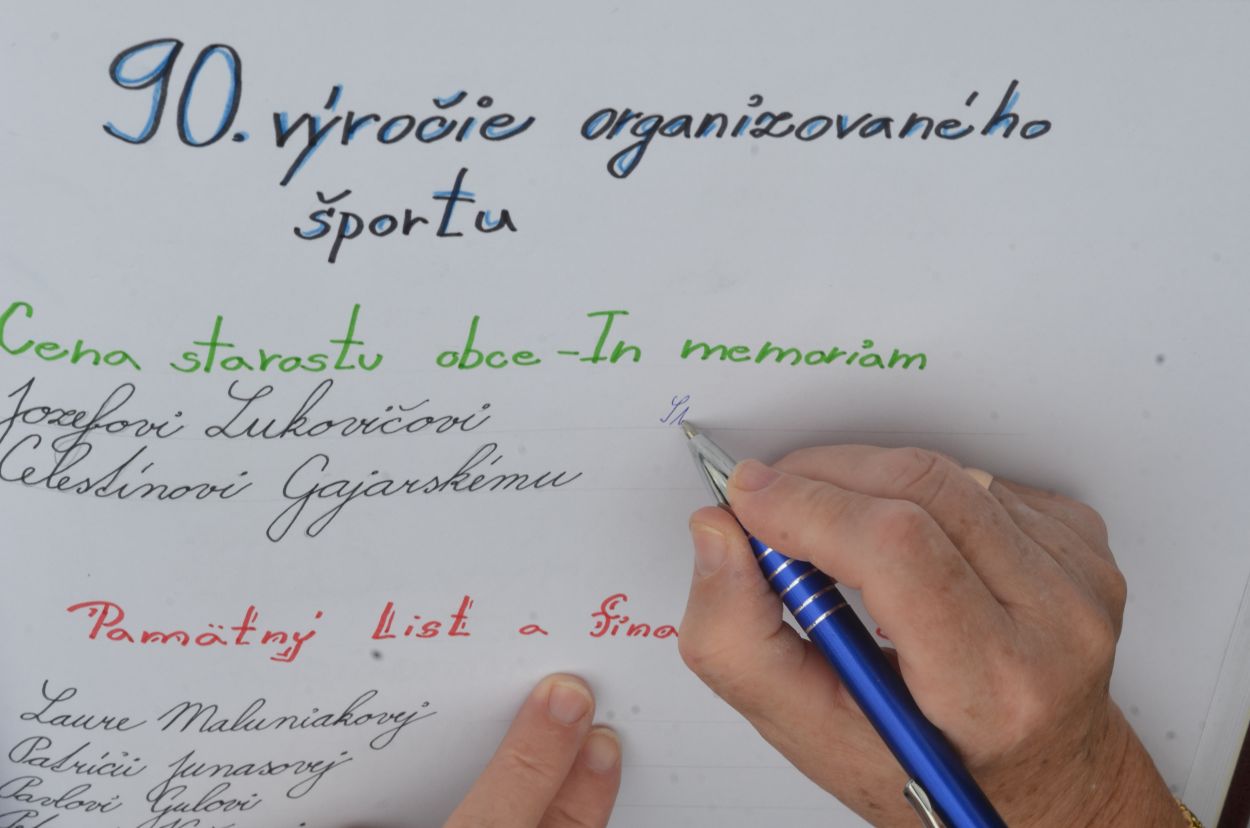 90. výročie organizovaného
športu
Cena starostu obce - In memoriam
Jozefovi Lukovičovi
Celestínovi Gajarskému
Pamätný list a
Laure Maluniakovej
Patrícii Junasovej
Pavlovi Gulovi